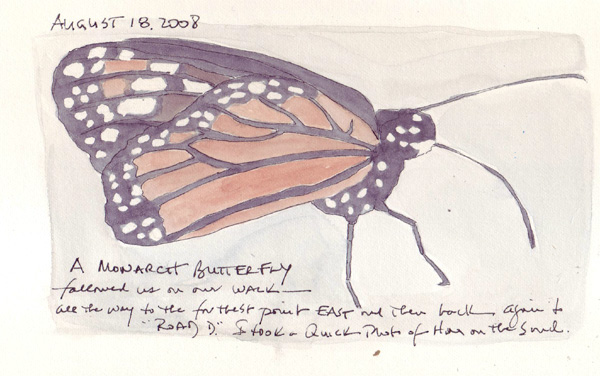 AUGUST 18, 2008
A MONARCH BUTTERFLY
followed us on our WALK —
all the way to the furthest point EAST and then back again to
"ROAD D." I took a Quick Photo of Her on the Sand.